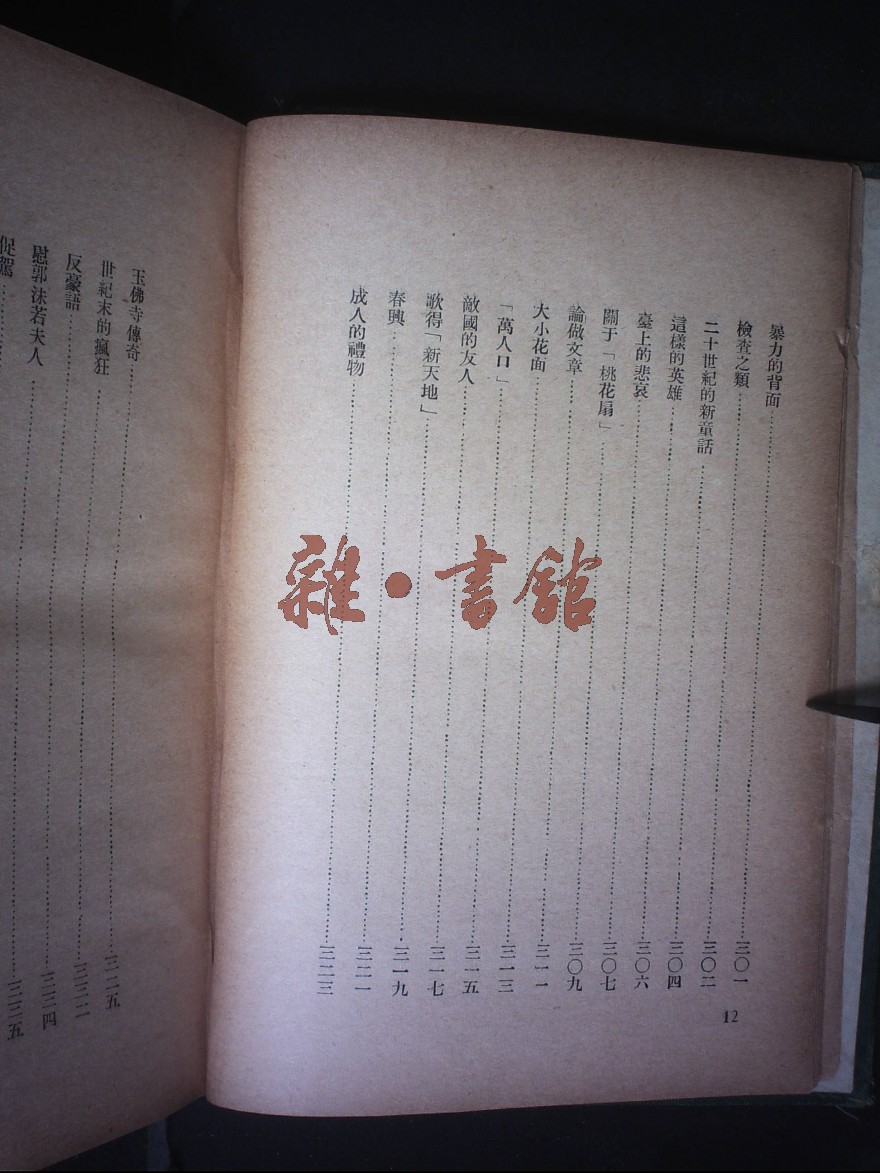 暴力的背面……三〇一
檢查之類……三〇二
二十世紀的新童話……三〇二
這樣的英雄……三〇四
臺上的悲哀……三〇六
關于「桃花扇」……三〇七
論做文章……三〇九
大小花面……三一一
「萬人口」……三一三
敵國的友人……三一五
歌得「新天地」……三一七
春興……三一九
成人的禮物……三二一
三二三
12
玉佛寺傳奇……三二五
世紀末的瘋狂
反豪語
慰郭沫若夫人
促駕……三三五
雜·書館